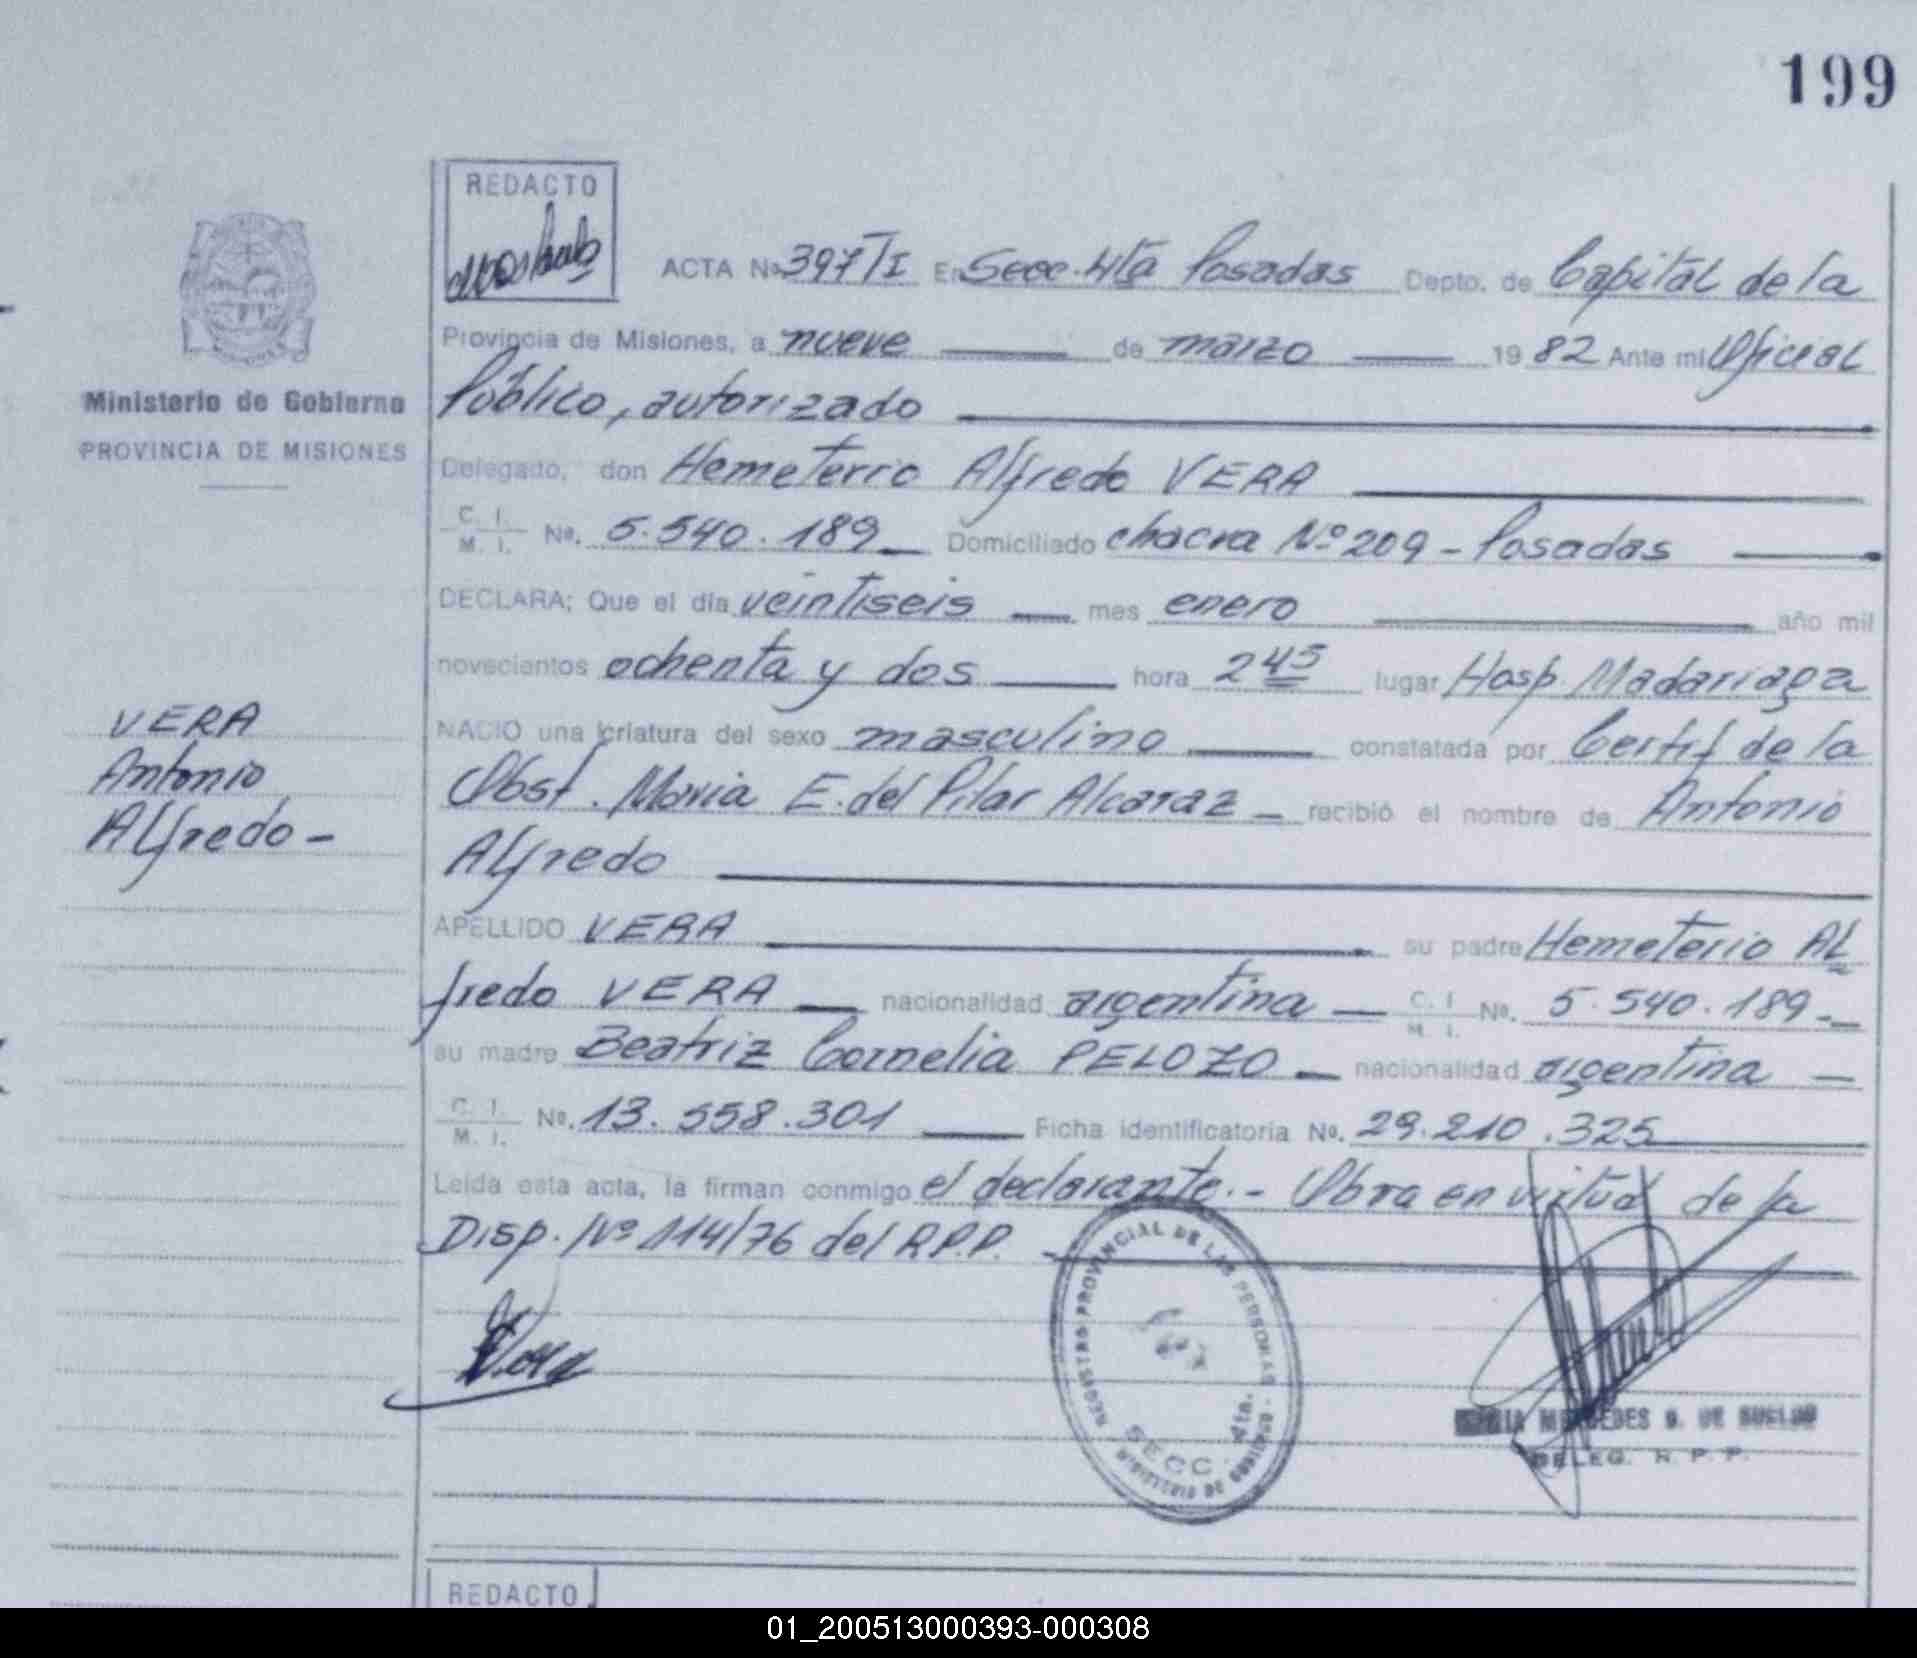 199
REDACTO
ACTA No. 397/I En Secc. 4ta Posadas Depto. de Capital de la
Provincia de Misiones, a nueve de marzo 1982 Ante mi Oficial
Ministerio de Gobierno
Público, autorizado
PROVINCIA DE MISIONES
Delegado, don Hemeterio Alfredo VERA
C. I. M. I. No. 5.540.189 Domiciliado chacra Nº 209 - Posadas
DECLARA; Que el día veintiseis mes enero año mil
novecientos ochenta y dos hora 2 45 lugar Hosp. Madariaga
VERA
NACIO una criatura del sexo masculino constatada por Certif de la
Antonio
Obst. Maria E. del Pilar Alcaraz - recibió el nombre de Antonio
Alfredo -
Alfredo
APELLIDO VERA su padre Hemeterio Al
fredo VERA nacionalidad argentina C. I. M. I. No. 5.540.189 -
su madre Beatriz Cornelia PELOZO - nacionalidad argentina -
C. I. M. I. No. 13.558.301 Ficha identificatoria No. 29.210.325
Leída esta acta, la firman conmigo el declarante. - Obra en virtud de la
Disp. Nº 114/76 del R.P.P.
REGISTRO PROVINCIAL DE LAS PERSONAS
SECC. 4ta.
MINISTERIO DE GOBIERNO
MARIA MERCEDES G. DE
DELEG. R. P. P.
REDACTO
01_200513000393-000308